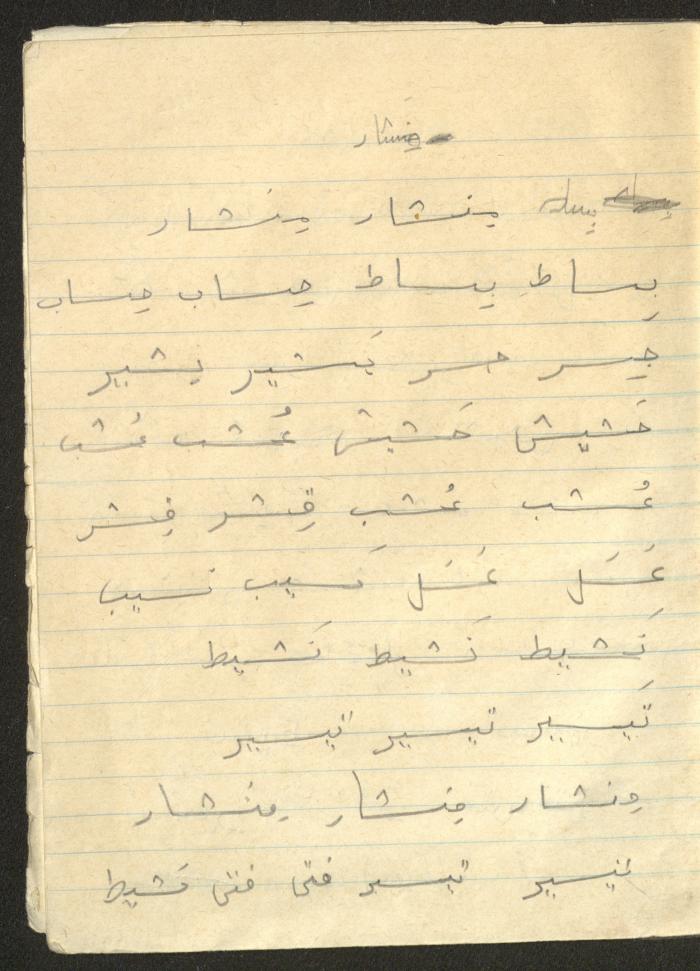 منشار
بسا منشار مِنشار
بِساطِ بِساط حِساب حِساب
جِسر جسر يَشير يشير
حَشيش حَشيش عُشب عُشب
عُشب عُشب قِشر قِشر
عَسَل عَسَل نَسيب نسيب
نَشيط نَشيط نَشيط
تَيسير تيسير تيسير
منشار منشار مِنشار
تيسير تيسير فتى فتى نَشيط